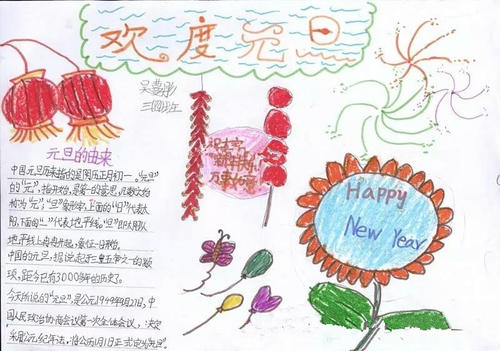 欢度元旦
三(四)班
元旦的由来
中国元旦历来指的是阴历正月初一。"元"
的"元",指开始,是第一的意思,凡数之始
称为"元","旦"象形字,上面的"日"代表太
阳,下面的"一"代表地平线。"旦"即太阳从
地平线上冉冉升起,象征一日开始。
中国的元旦,据说起于三皇五帝之一的颛
顼,距今已有3000多年的历史了。
今天所说的"元旦",是公元1949年9月27日,中
国人民政治协商会议第一次全体会议,决定
采用公元纪年法,将公历1月1日正式定为"元旦"。
祝大家
新年快乐
万事如意
Happy
New Year